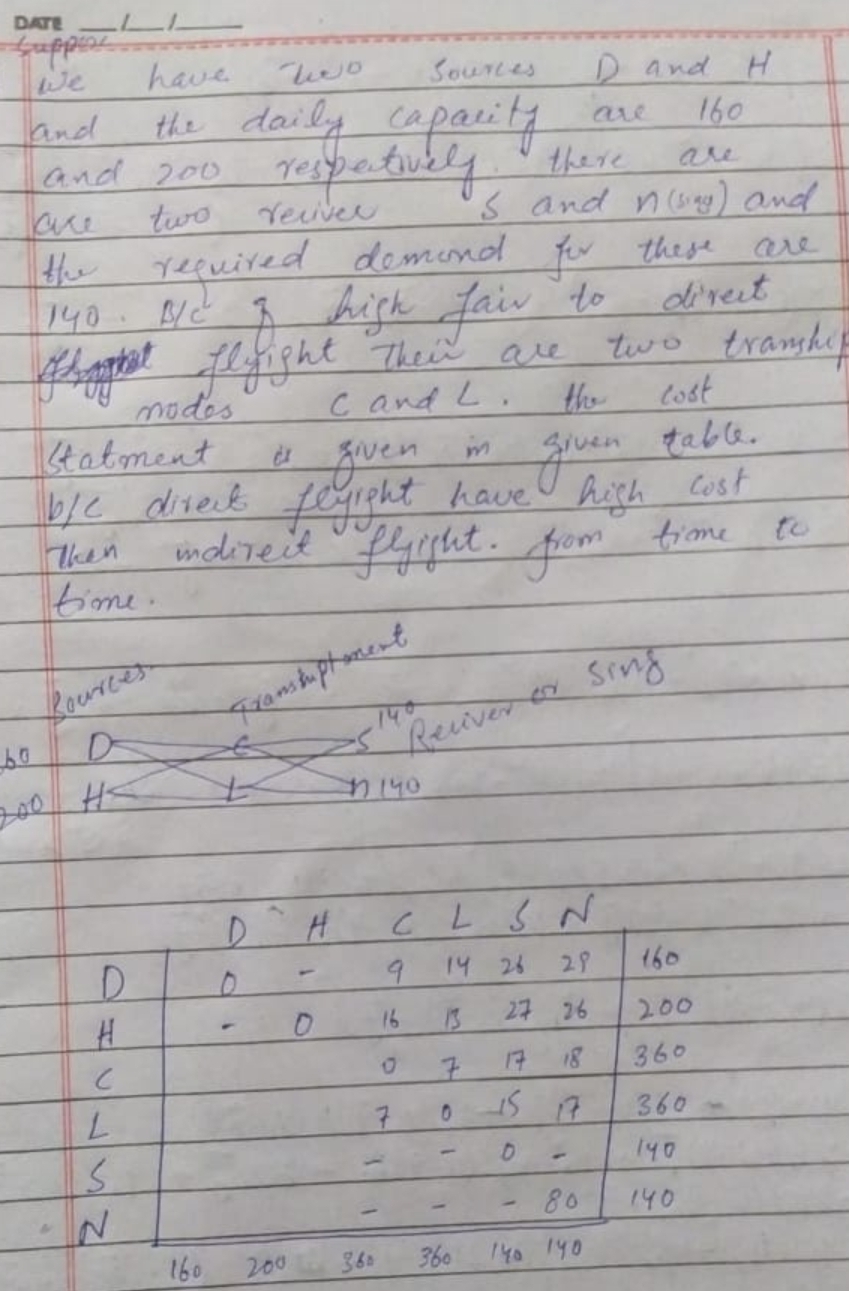 DATE __/__/____
Suppose
We have two sources D and H
and the daily capacity are 160
and 200 respetively. there are
are two reciver S and n(sing) and
the required demand for these are
140. B/c of high fair to direct
flyight Their are two tranship
nodes C and L. the cost
Statment is given in given table.
b/c direct flyight have high cost
then indirect flyight. from time to
time.
Sources. Transhiptment
60 D C S 140 Reciver or Sing
200 H L n 140
D H C L S N
D 0 - 9 14 26 29 160
H - 0 16 13 27 26 200
C 0 7 17 18 360
L 7 0 15 17 360 -
S - - 0 - 140
N - - - 80 140
160 200 360 360 140 140